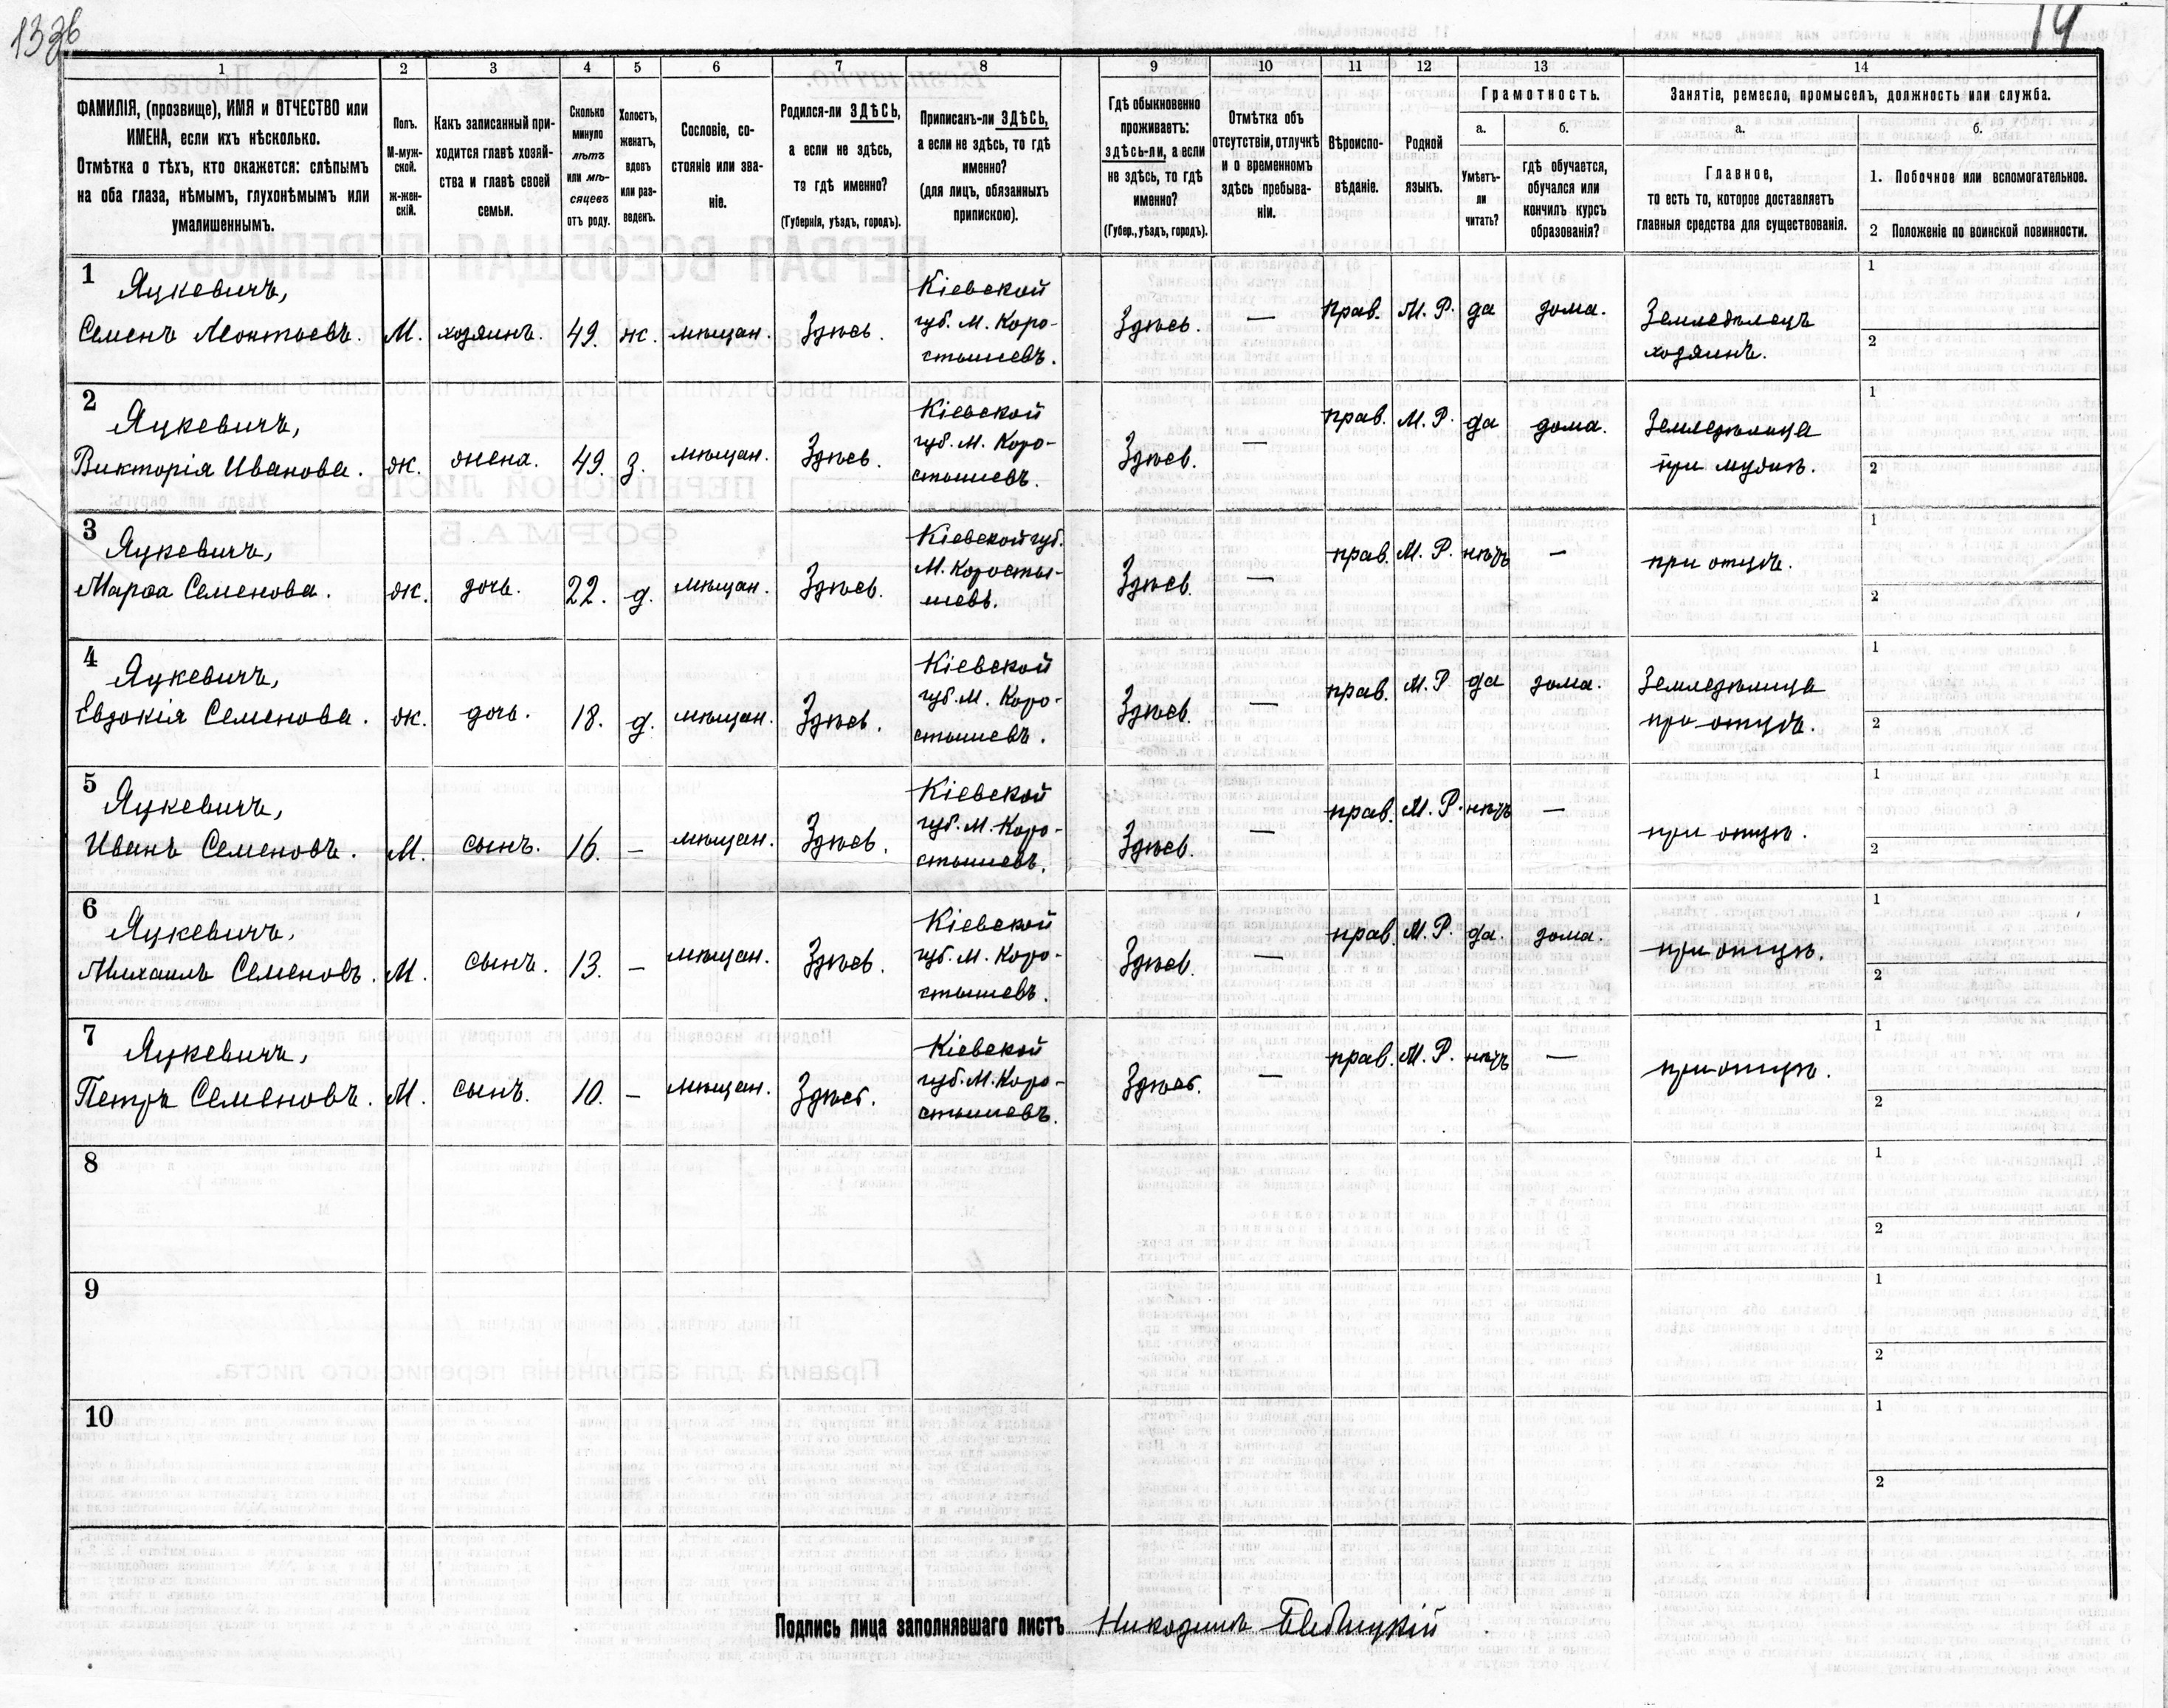 14
1 2 3 4 5 6 7 8 9 10 11 12 13 14
ФАМИЛІЯ, (прозвище), ИМЯ и ОТЧЕСТВО или
ИМЕНА, если ихъ нѣсколько.
Отмѣтка о тѣхъ, кто окажется: слѣпымъ
на оба глаза, нѣмымъ, глухонѣмымъ или
умалишеннымъ.
Полъ.
М-муж-
ской.
ж-жен-
скій.
Какъ записанный при-
ходится главѣ хозяй-
ства и главѣ своей
семьи.
Сколько
минуло
лѣтъ
или мѣ-
сяцевъ
отъ роду.
Холостъ,
женатъ,
вдовъ
или раз-
веденъ.
Сословіе, со-
стояніе или зва-
ніе.
Родился-ли ЗДѢСЬ,
а если не здѣсь,
то гдѣ именно?
(Губернія, уѣздъ, городъ).
Приписанъ-ли ЗДѢСЬ,
а если не здѣсь, то гдѣ
именно?
(для лицъ, обязанныхъ
припискою).
Гдѣ обыкновенно
проживаетъ:
здѣсь-ли, а если
не здѣсь, то гдѣ
именно?
(Губер., уѣздъ, городъ).
Отмѣтка объ
отсутствіи, отлучкѣ
и о временномъ
здѣсь пребыва-
ніи.
Вѣроиспо-
вѣданіе.
Родной
языкъ.
Грамотность.
а.
Умѣетъ-
ли
читать?
б.
гдѣ обучается,
обучался или
кончилъ курсъ
образованія?
Занятіе, ремесло, промыселъ, должность или служба.
а.
Главное,
то есть то, которое доставляетъ
главныя средства для существованія.
б.
1. Побочное или вспомогательное.
2 Положеніе по воинской повинности.
1
Яцкевичъ,
Семенъ Леонтьевъ.
М.
хозяинъ.
49.
ж.
мѣщан.
Здѣсь.
Кіевской
губ. М. Коро-
стышевъ.
Здѣсь.
—
прав.
М. Р.
да
дома.
Земледѣлецъ
хозяинъ.
1
2
2
Яцкевичъ,
Викторія Иванова.
ж.
жена.
49.
з.
мѣщан.
Здѣсь.
Кіевской
губ. М. Коро-
стышевъ.
Здѣсь.
—
прав.
М. Р.
да
дома.
Земледѣлица
при мужѣ.
1
2
3
Яцкевичъ,
Марѳа Семенова.
ж.
дочь.
22.
д.
мѣщан.
Здѣсь.
Кіевской губ.
М. Коросты-
шевъ.
Здѣсь.
—
прав.
М. Р.
нѣтъ
—
при отцѣ.
1
2
4
Яцкевичъ,
Евдокія Семенова.
ж.
дочь.
18.
д.
мѣщан.
Здѣсь.
Кіевской
губ. М. Коро-
стышевъ.
Здѣсь.
—
прав.
М. Р.
да
дома.
Земледѣлица
при отцѣ.
1
2
5
Яцкевичъ,
Иванъ Семеновъ.
М.
сынъ.
16.
—
мѣщан.
Здѣсь.
Кіевской
губ. М. Коро-
стышевъ.
Здѣсь.
—
прав.
М. Р.
нѣтъ
—
при отцѣ.
1
2
6
Яцкевичъ,
Михаилъ Семеновъ.
М.
сынъ.
13.
—
мѣщан.
Здѣсь.
Кіевской
губ. М. Коро-
стышевъ.
Здѣсь.
—
прав.
М. Р.
да.
дома.
при отцѣ.
1
2
7
Яцкевичъ,
Петръ Семеновъ.
М.
сынъ.
10.
—
мѣщан.
Здѣсь.
Кіевской
губ. М. Коро-
стышевъ.
Здѣсь.
—
прав.
М. Р.
нѣтъ
—
при отцѣ.
1
2
8
1
2
9
1
2
10
1
2
Подпись лица заполнявшаго листъ Никодимъ